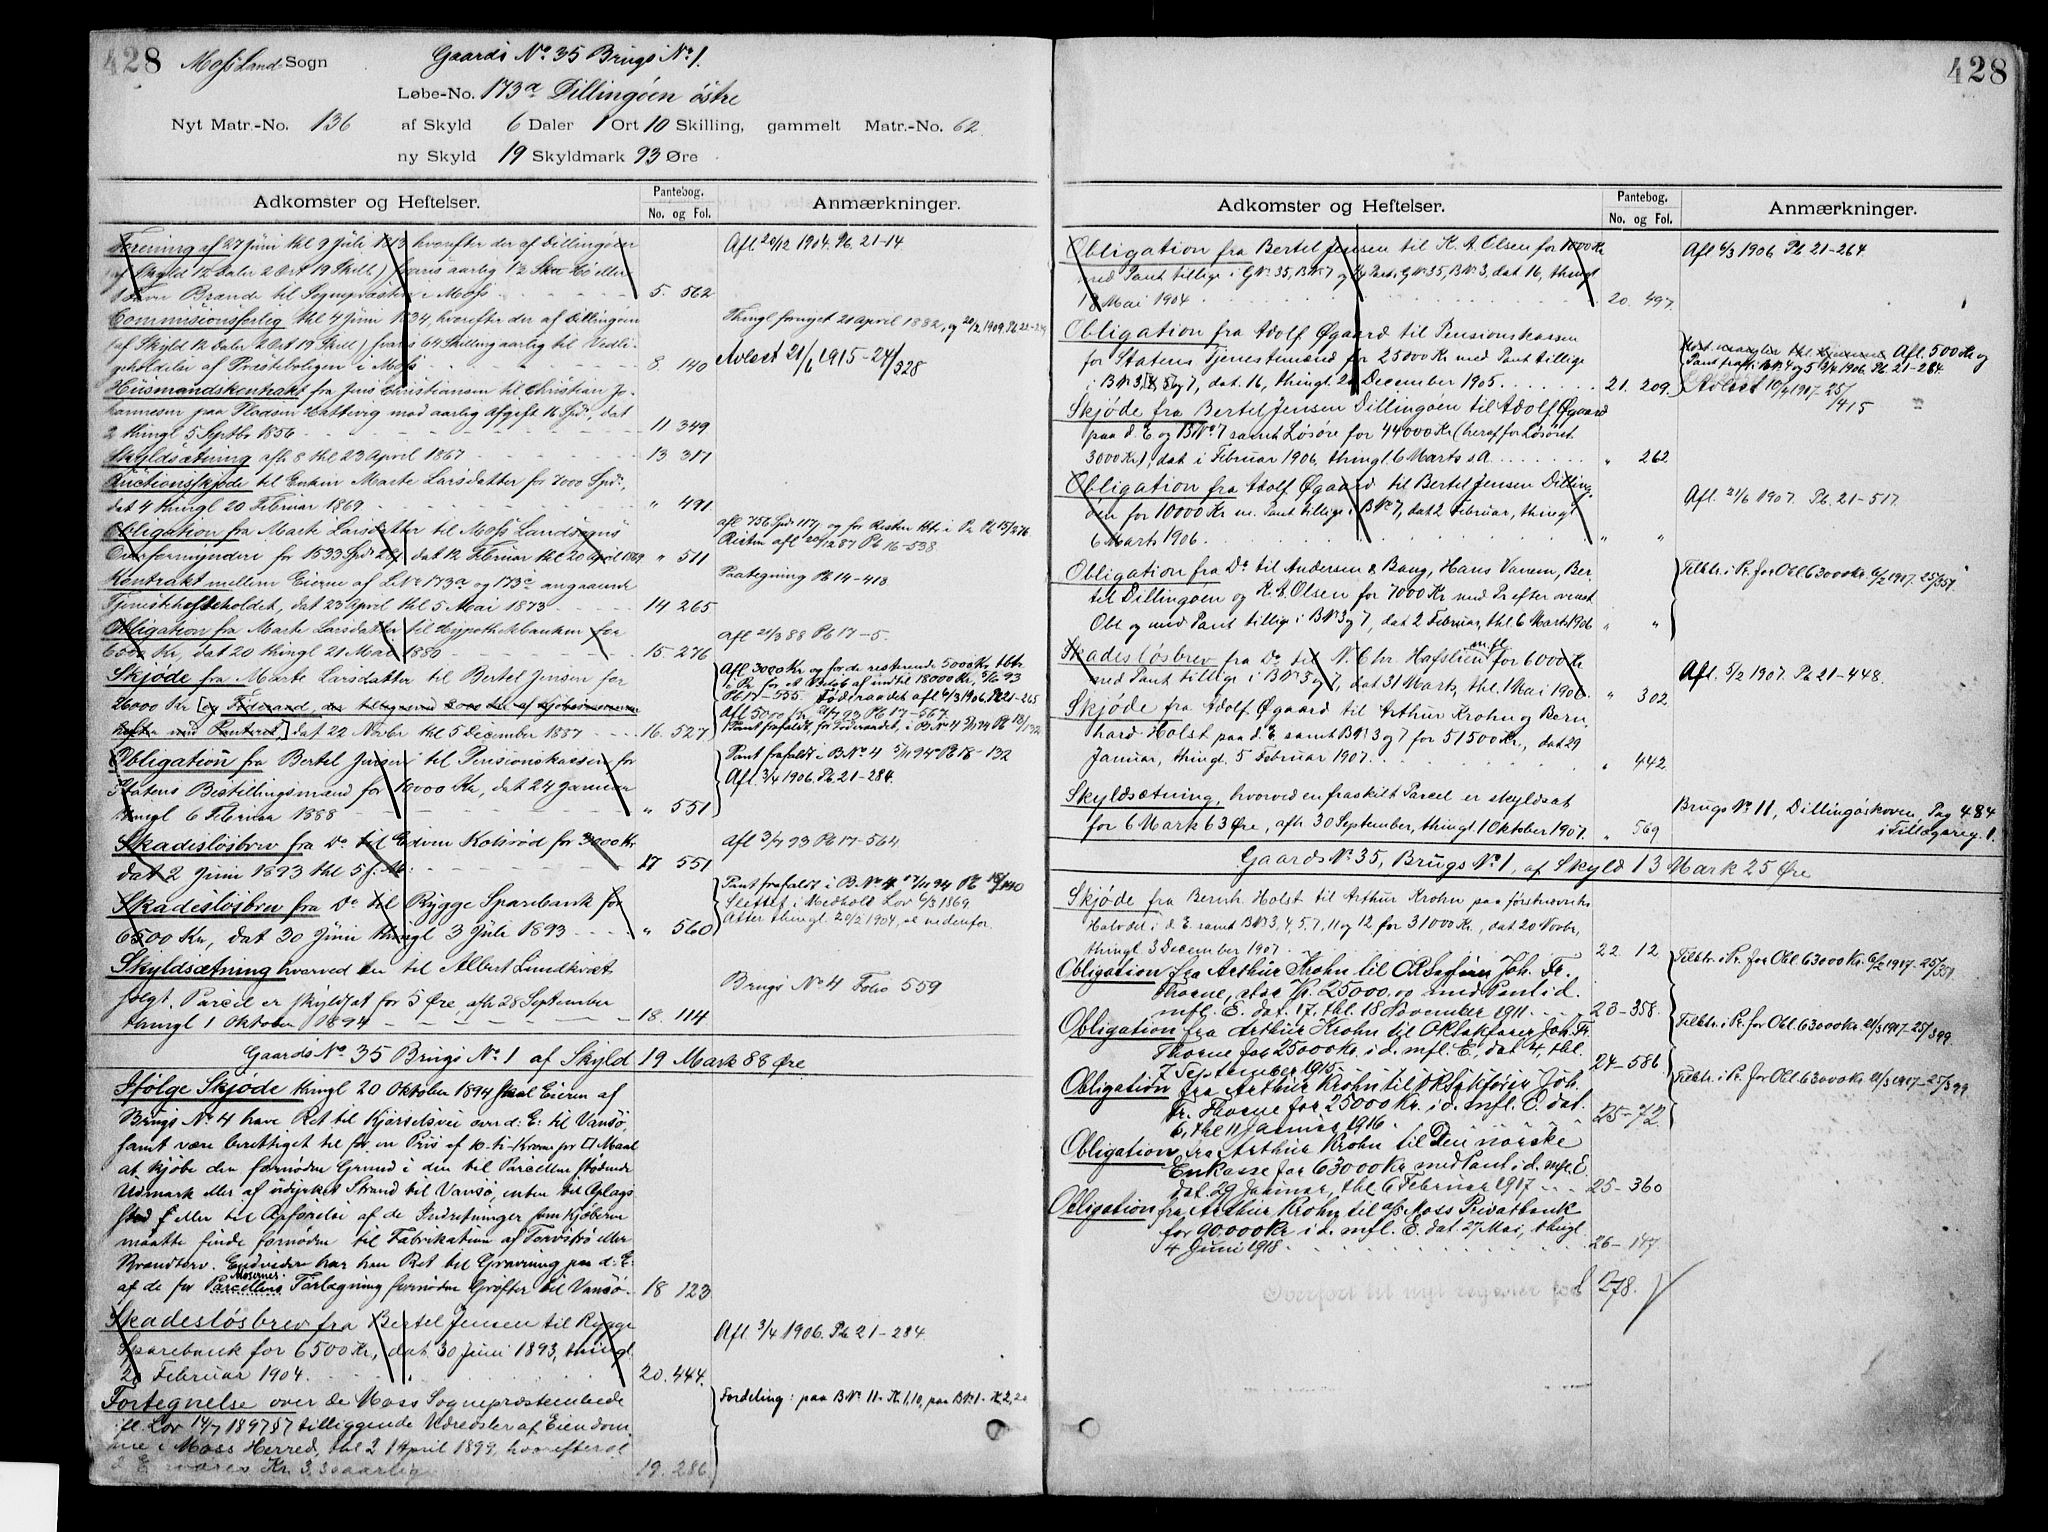 428
Moss Land Sogn
Gaards No 35 Brugs No 1.
Løbe-No. 173a Dillingøen østre
Nyt Matr.-No. 136 af Skyld 6 Daler 1 Ort 10 Skilling, gammelt Matr.-No. 62.
ny Skyld 19 Skyldmark 93 Øre
Adkomster og Heftelser.
Pantebog.
No. og Fol.
Anmærkninger.
Forening af 27 Juni thl 9 Juli 1813 hvorefter der af Dillingøen
(af Skyld 12 Daler 2 Ort 19 Skill) svares aarlig
Brænde til Sognepræsten i Moss 5. 562
Afl 20/12 1904. Pb. 21-14
Commisionsforlig thl 4 Juni 1834, hvorefter der af Dillingøen
(af Skyld 12 Daler 2 Ort 19 Skill) svares 64 Skilling aarlig til Vedli-
geholdelse af Præsteboligen i Moss 8. 140
Thingl fornyet 20 April 1882, og 20/2 1909
Avlest 21/6 1915 - 24/328
Husmandskontrakt fra Jens Christiansen til Christian Jo-
hannesen paa Pladsen Hattevig mod aarlig Afgift 16 Spd, dat
2 thingl 5 Septbr 1856 11 349
Skyldsætning afh 8 thl 23 April 1867 13 317
Auctionsskjøde til Enken Marte Larsdatter for 7000 Spd,
dat 4 thingl 20 Februar 1869 " 491
Obligation fra Marte Larsdatter til Moss Landsogns
Overformynderi for 1533 Spd dat 12 Februar thl 20 April 1869 " 511
afl 756 Spd og for Resten
Resten afl 20/12 87 Pb 16-538
Kontrakt mellem Eierne af L.No 173a og 173c angaaende
dat 23 April thl 5 Mai 1873 14 265
Paategning Pb 14-418
Obligation fra Marte Larsdatter til Hypothekbanken for
6000 Kr, dat 20 thingl 21 Mai 1880 15 276
Afl 21/3 88 Pb 17-5.
Skjøde fra Marte Larsdatter til Bertel Jensen for
26000 Kr
dat 22 Novbr thl 5 December 1887 16. 527
Afl 3000 Kr og for de resterende 5000 Kr
Pb 17-555 Føderaadet afl 6/3 1906 Pb 21-265
Afl 5000 Kr Pb 17-567
Obligation fra Bertel Jensen til Pensionskassen for
Statens Bestillingsmænd for 10000 Kr, dat 24 Januar
thingl 6 Februar 1888 " 551
Pant frafaldt i B.No 4 94 Pb 18-132
Afl. 3/4 1906. Pb. 21-284.
Skadesløsbrev fra Do til Edvin Kolsrød for 3000 Kr
dat 2 Juni 1893 thl 5 s.M. 17 551
afl 3/7 93 Pb 17-564
Skadesløsbrev fra Do til Rygge Sparebank for
6500 Kr, dat 30 Juni thingl 3 Juli 1893 " 560
Pant frafaldt i B.No 4
Slettet i Medhold Lov 6/3 1869
Atter thingl 20/2 1904, se nedenfor.
Skyldsætning hvorved en til Albert Lundkvist
solgt Parcel er skyldsat for 5 Øre, afh 28 September
thingl 1 Oktober 1894 18. 114
Brugs No 4 Folio 559
Gaards No 35 Brugs No 1 af Skyld 19 Mark 88 Øre
Ifølge Skjøde thingl 20 Oktober 1894 skal Eieren af
Brugs No 4 have Ret til Kjørselsvei over d: E: til Vansø,
samt være berettiget til for en Pris af 10-ti-Kroner pr □ Maal
at kjøbe den fornødne Grund i den til Parcellen stødende
Udmark eller af udyrket Strand til Vansø, enten til Oplags
sted eller til Opførelse af de Indretninger som Kjøberen
maatte finde fornøden til Fabrikation af Torvstrø eller
Brændtorv. Endvidere har han Ret til Gravning paa d: E:
af de for Parcellens Mosernes Tørlægning fornødne Grøfter til Vansø 18 123
Skadesløsbrev fra Bertel Jensen til Rygge
Sparebank for 6500 Kr, dat 30 Juni 1893, thingl
20 Februar 1904. 20. 444.
Afl. 3/4 1906. Pb 21-284.
Fortegnelse over de Moss Sognepræstembede
ifl. Lov 14/7 1897 § 7 tilliggende Udredsler af Eiendom-
me i Moss Herred, thl 21 April 1899, hvorefter af
d E svares Kr 3,30 aarlig 19. 286
Fordeling: paa BNo 11 - K 1,10, paa BNo 1 - K 2,20
428
Adkomster og Heftelser.
Pantebog.
No. og Fol.
Anmærkninger.
Obligation fra Bertel Jensen til K. A. Olsen for 1000 Kr
med Pant tillige i GNo 35, BNo 7 og GNo 35, BNo 3, dat 16, thingl
18 Mai 1904 20. 497.
Afl 6/3 1906 Pb 21-264.
Obligation fra Adolf Øgaard til Pensionskassen
for Statens Tjenestemænd for 25000 Kr med Pant tillige
i BNo 3, og 7, dat. 16, thingl. 20 December 1905. 21. 209.
Afl. 500 Kr og
Pant fraf. i BNo 4 og 5 3/4 1906. Pb. 21-284.
Avlest 10/4 1917-25/415
Skjøde fra Bertel Jensen Dillingøen til Adolf Øgaard
paa d. E og BNo 7 samt Løsøre for 44000 Kr (heraf for Løsøret
3000 Kr), dat i Februar 1906, thingl. 6 Marts s.A. " 262
Obligation fra Adolf Øgaard til Bertel Jensen Dilling-
øen for 10000 Kr m. Pant tillige i BNo 7, dat 2 Februar, thingl
6 Marts 1906. " "
Afl. 21/6 1907. Pb. 21-517.
Obligation fra Do til Andersen & Bang, Hans Vanem, Ber-
til Dillingøen og K. A. Olsen for 7000 Kr med Pr efter ovenst.
Obl og med Pant tillige i BNo 3 og 7, dat 2 Februar, thl 6 Marts 1906 " "
Tilbtr. i Pr. for Obl 63000 Kr. 6/2 1917-25/351.
Skadesløsbrev fra Do til N. Chr. Hafslien m.fl. for 6000 Kr
med Pant tillige i BNo 3 og 7, dat 31 Marts, thl. 1 Mai 1906 " 302
Afl. 5/2 1907. Pb 21-448.
Skjøde fra Adolf Øgaard til Arthur Krohn og Bern-
hard Holst paa d. E samt BNo 3 og 7 for 51500 Kr., dat 29
Januar, thingl. 5 Februar 1907. " 442
Skyldsætning, hvorved en fraskilt Parcel er skyldsat
for 6 Mark 63 Øre, afh 30 September, thingl. 1 Oktober 1907. " 569
Brugs No 11, Dillingøskoven, Pag 484
i Tillægsreg. 1.
Gaards No 35, Brugs No 1, af Skyld 13 Mark 25 Øre
Skjøde fra Bernh. Holst til Arthur Krohn paa førstnævntes
Halvdel i d. E. samt BNo 3, 4, 5, 7, 11 og 12 for 31000 Kr., dat 20 Novbr,
thingl 3 December 1907. 22 12
Obligation fra Arthur Krohn til O.R. Sagfører Joh. Fr.
Thorne, stor Kr. 25000,00 med Pant i d.
mfl. E. dat. 17. thl. 18 November 1911. 23-358.
Tilbtr. i Pr. for Obl 63000 Kr. 6/2 1917-25/351.
Obligation fra Arthur Krohn til ORSakfører Joh. Fr.
Thorne for 25000 Kr. i d. mfl. E., dat 4, thl.
7 September 1915. 24-586
Tilbtr. i Pr. for Obl 63000 Kr. 21/3 1917-25/399.
Obligation fra Arthur Krohn til ORSakfører Joh.
Fr. Thorne for 25000 Kr. i d. mfl. E. dat.
6, thl 11 Januar 1916. 25-72.
Tilbtr. i Pr. for Obl 63000 Kr. 21/3 1917-25/399.
Obligation fra Arthur Krohn til Den norske
Enkekasse for 63000 Kr med Pant i d. mfl. E.
dat. 29 Januar, thl 6 Februar 1917 25-360
Obligation fra Arthur Krohn til a/s Moss Privatbank
for 90.000 Kr i d. mfl. E. dat 27 Mai, thingl
4 Juni 1918. 26-147.
Overført til nyt register fol 178.